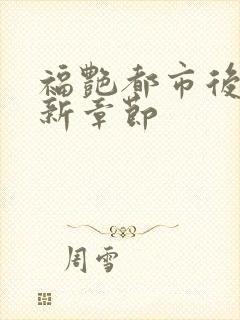 福艷都市後
新章節
周雪